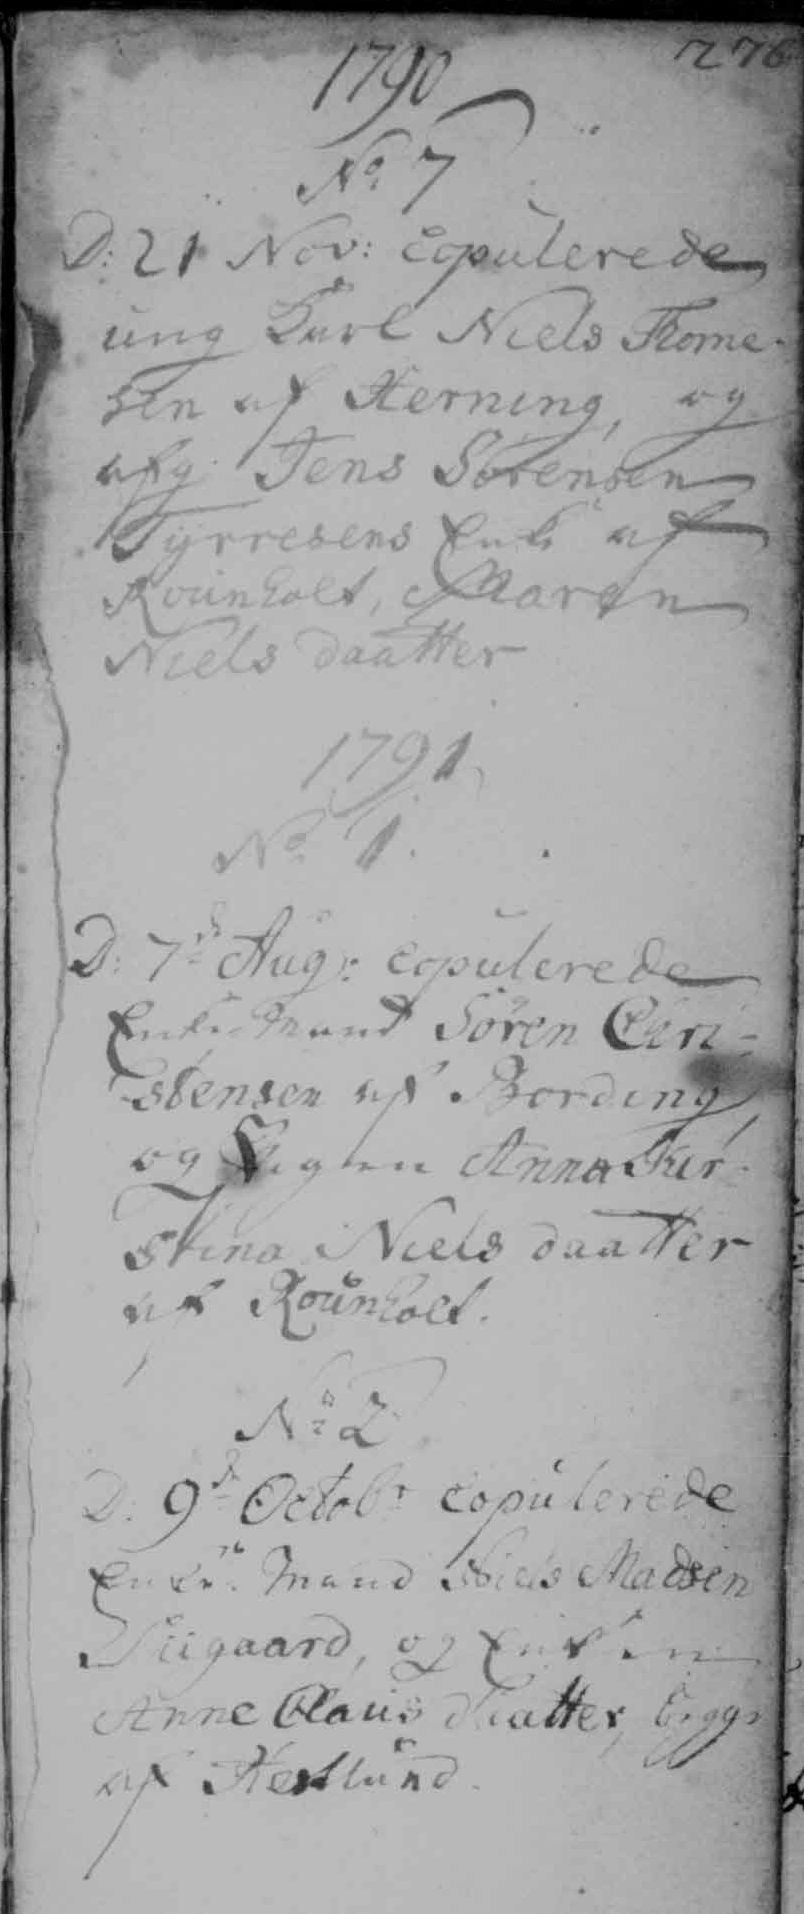 1790
276
No 7
D: 21 Nov: copulerede
ung Karl Niels Thome-
sen af Herning, og
afg. Jens Sørensen
Tyrresens Enke af
Rounholt, Maren
Niels daatter
1791
No 1.
D: 7de Aug: copulerede
Enke-Mand Sören Chri-
stensen af Bording,
og Pigen Anna Kir-
stina Niels daatter
af Rounholt.
No 2
D. 9de Octobr copulerede
Enke-Mand Niels Madsen
og Enken
Anne Claus daatter, begge
af Hestlund.